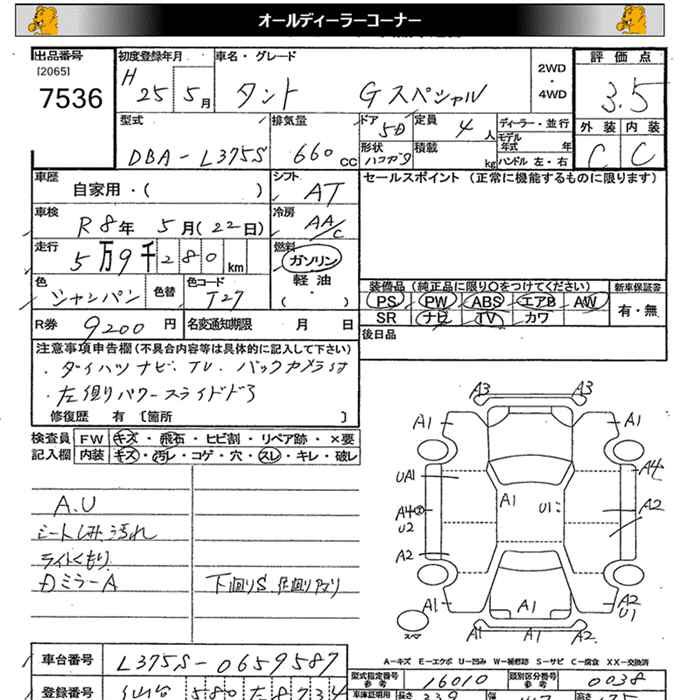 オールディーラーコーナー
出品番号
[2065]
7536
初度登録年月
H 25年 5月
車名・グレード
タント Gスペシャル
2WD
・
4WD
評価点
3.5
外装 内装
C C
型式
DBA-L375S
排気量
660cc
ドア
5D
形状
ハコガタ
定員
4人
積載
kg
ディーラー・並行
モデル
年式 年
ハンドル 左・右
車歴
自家用・( )
シフト
AT
セールスポイント (正常に機能するものに限ります)
車検
R8年 5月(22日)
冷房
AA/C
走行
5万9千280km
燃料
ガソリン
軽油
・( )
色
シャンパン
色替
色コード
T27
装備品 (純正品に限り○をつけてください)
新車保証書
PS PW ABS エアB AW
有・無
SR ナビ TV カワ
R券
9200円
名変通知期限 月 日
後日品
注意事項申告欄(不具合内容等は具体的に記入して下さい)
・ダイハツナビ、TV、バックカメラ付
・左側パワースライドドア
修復歴 有 〔箇所 〕
検査員
記入欄
FW キズ・飛石・ヒビ割・リペア跡・×要
内装 キズ・汚レ・コゲ・穴・スレ・キレ・破レ
A.U
シートしみ汚れ
ライトくもり
Dミラー A
下回りS
A3 A3
A1 A1
UA1 A4
A1 U1
A4 A2
U2
A2
A1 A1 A2
U1
スペア
A1 A2
A-キズ E-エクボ U-凹み W-補修跡 S-サビ C-腐食 XX-交換済
車台番号
L375S-0659587
型式指定番号
参考
16010
類別区分番号
参考
0038
登録番号
580
8734
車庫証明用
参考
長さ
339
幅
147
高さ
175